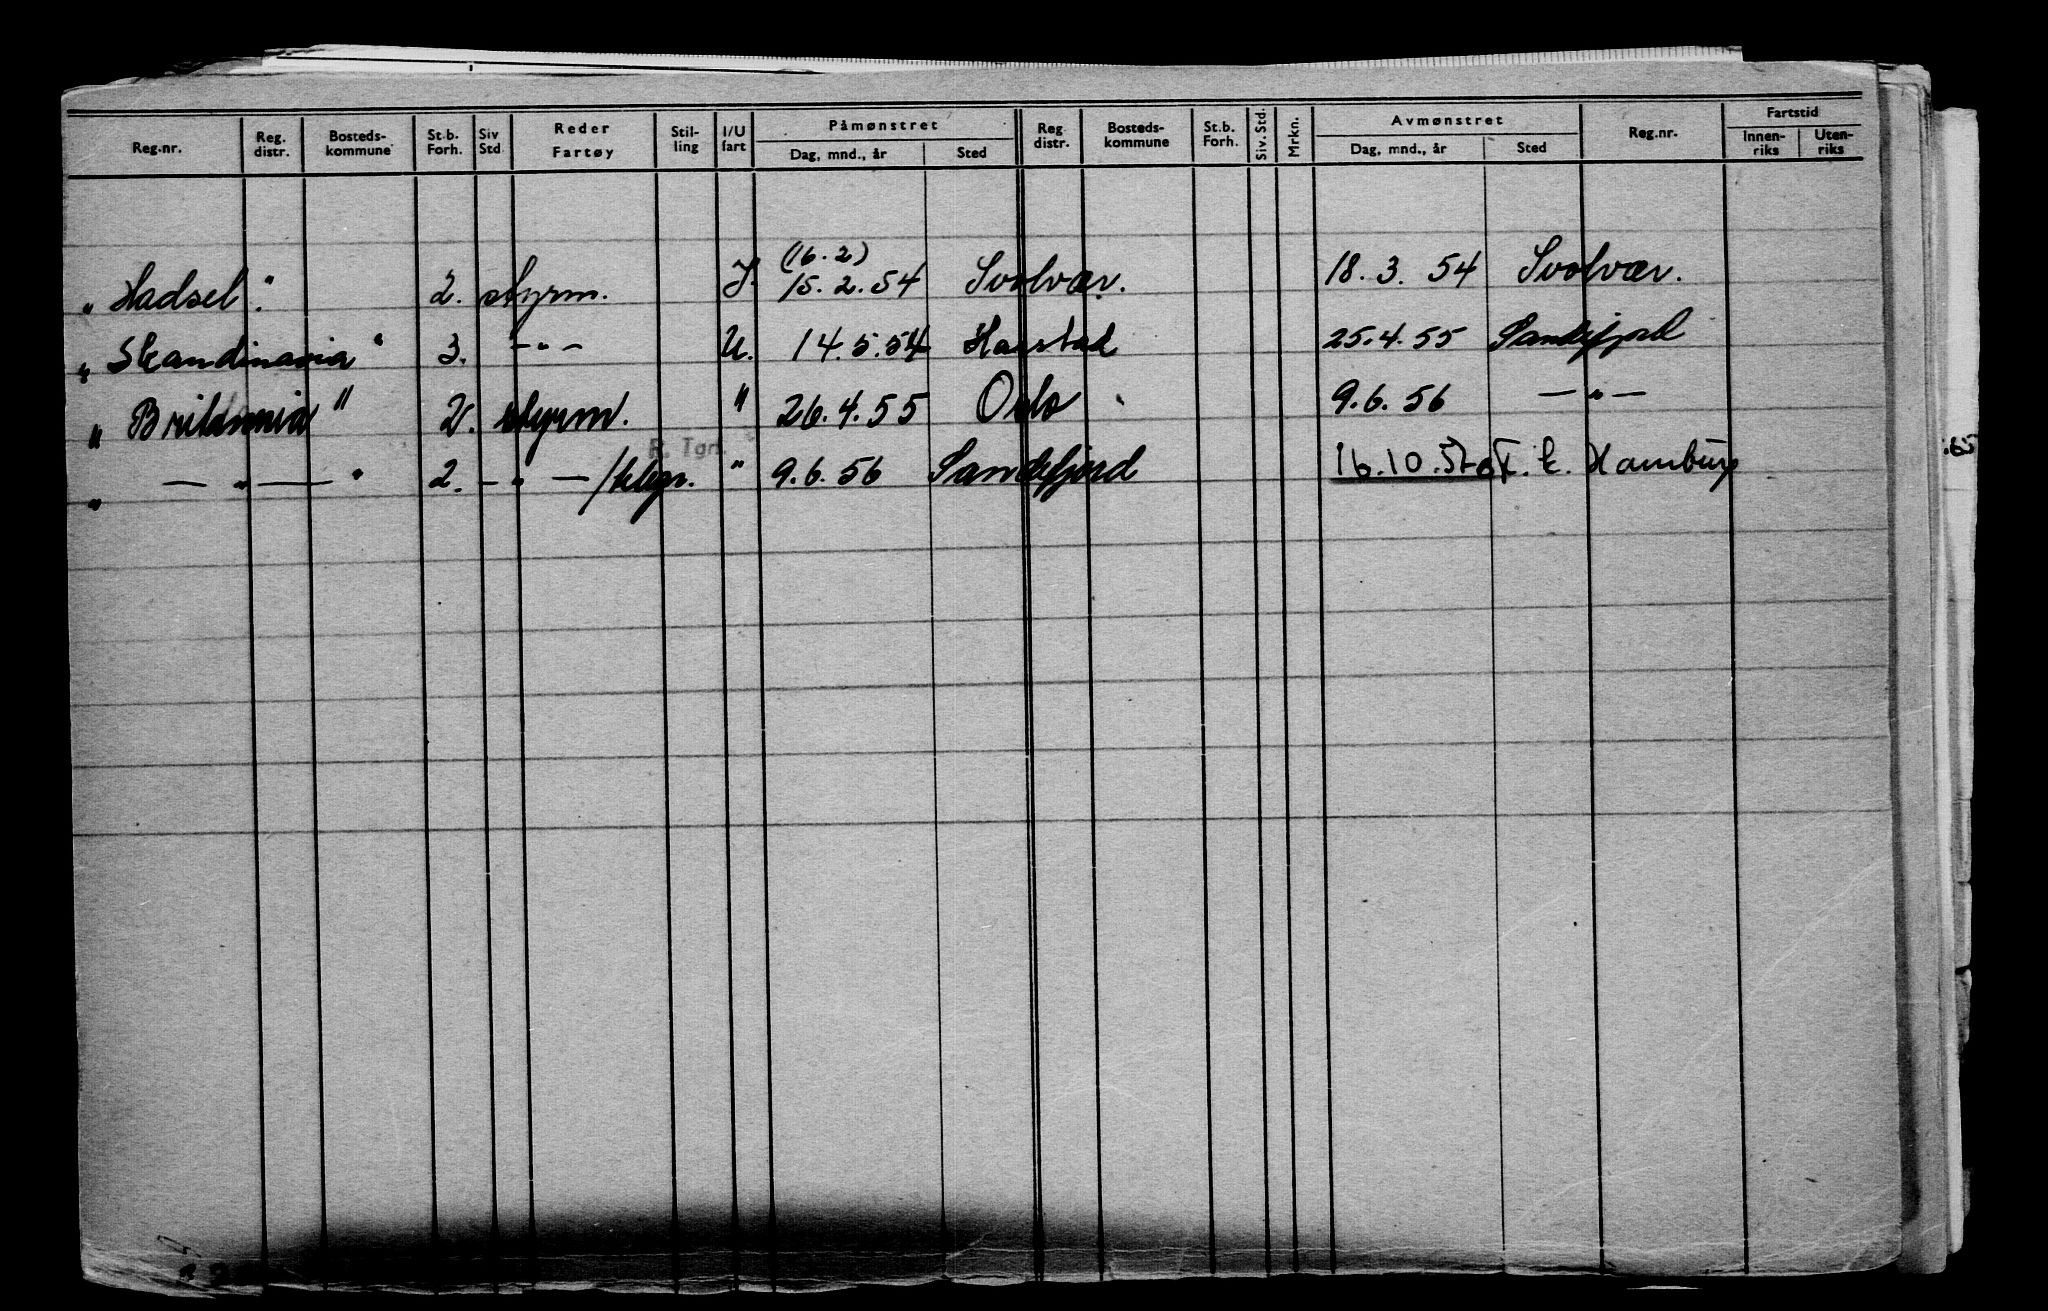 Reg.nr. Reg. distr. Bosteds-kommune St.b. Forh. Siv Std Reder Fartøy Stil-ling I/U fart Påmønstret Dag, mnd., år Sted Reg distr. Bosteds-kommune St.b. Forh. Siv. Std. Mrkn. Avmønstret Dag, mnd., år Sted Reg.nr. Fartstid Innen-riks Uten-riks
(16.2)
" Hadsel " 2. styrm. I. 15.2.54 Svolvær. 18.3.54 Svolvær.
" Skandinavia " 3. -"- U. 14.5.54 Harstad 25.4.55 Sandefjord
" Britannia " 2. styrm. " 26.4.55 Oslo 9.6.56 -"-
R. Tgr.
" -"- " 2. -"-/telegr. " 9.6.56 Sandefjord 16.10.56 F. k. Hamburg
.65